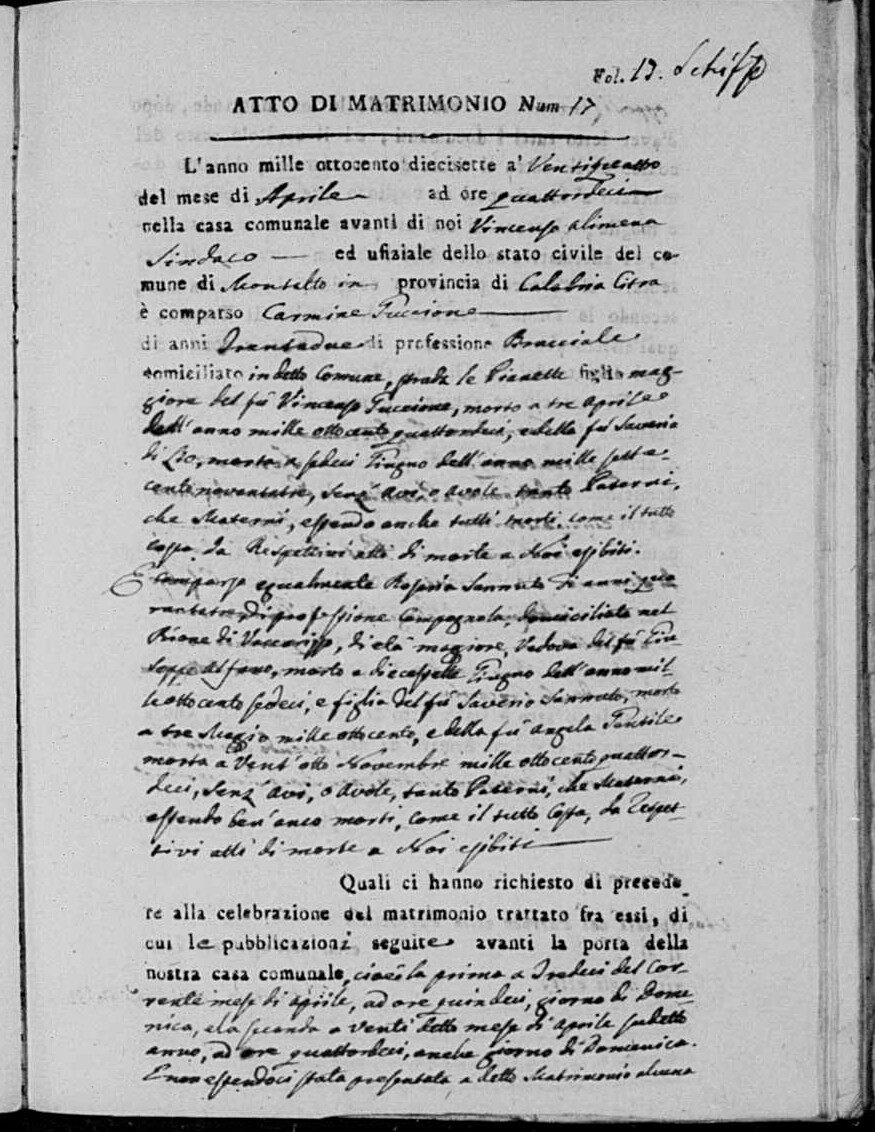 Fol. 17. Schiffo
ATTO DI MATRIMONIO Num 17
L'anno mille ottocento diecisette a' Ventiquatto
del mese di Aprile ad ore quattordeci
nella casa comunale avanti di noi Vincenzo alimena
Sindaco — ed ufiziale dello stato civile del co-
mune di Montalto in provincia di Calabria Citra
è comparso Carmine Puccione
di anni Trentadue di professione Bracciale
domiciliato in detto Comune, strada le Pianette figlio mag-
giore del fù Vincenzo Puccione, morto a tre Aprile
dell'anno mille ottocento quattordeci, e della fù Saveria
di Lio, morta a sedeci Giugno dell'anno mille sette
cento novantatre, senz'avi, o avole tanto Paterni,
che Materni, essendo anche tutti morti, come il tutto
costa da Respettivi atti di morte a Noi esibiti.
E comparsa egualmente Rosaria Sannuto di anni qua
rantatre di professione Campagnola, domiciliata nel
Rione di Vaccarizzo, di età magiore, Vedova del fù Giu
seppe Alfano, morto a diecessette Giugno dell'anno mil-
le ottocento sedeci, e figlia del fù Saverio Sannuto, morto
a tre Magio mille ottocento, e della fù Angela Gentile
morta a Vent'otto Novembre mille ottocento quattor-
deci, senz'avi, o avole, tanto Paterni, che Materni,
essendo ben'anco morti, come il tutto costa, da respet-
tivi atti di morte a Noi esibiti
Quali ci hanno richiesto di procede
re alla celebrazione del matrimonio trattato fra essi, di
cui le pubblicazioni seguite avanti la porta della
nostra casa comunale, cioè la prima a Tredeci del Cor-
rente mese di Aprile, ad ore quindeci, giorno di Dome-
nica, e la seconda a venti detto mese di Aprile sudetto
anno, ad ore quattordeci, anche giorno di Domenica.
E non essendoci stata presentata a detto Matrimonio alcuna